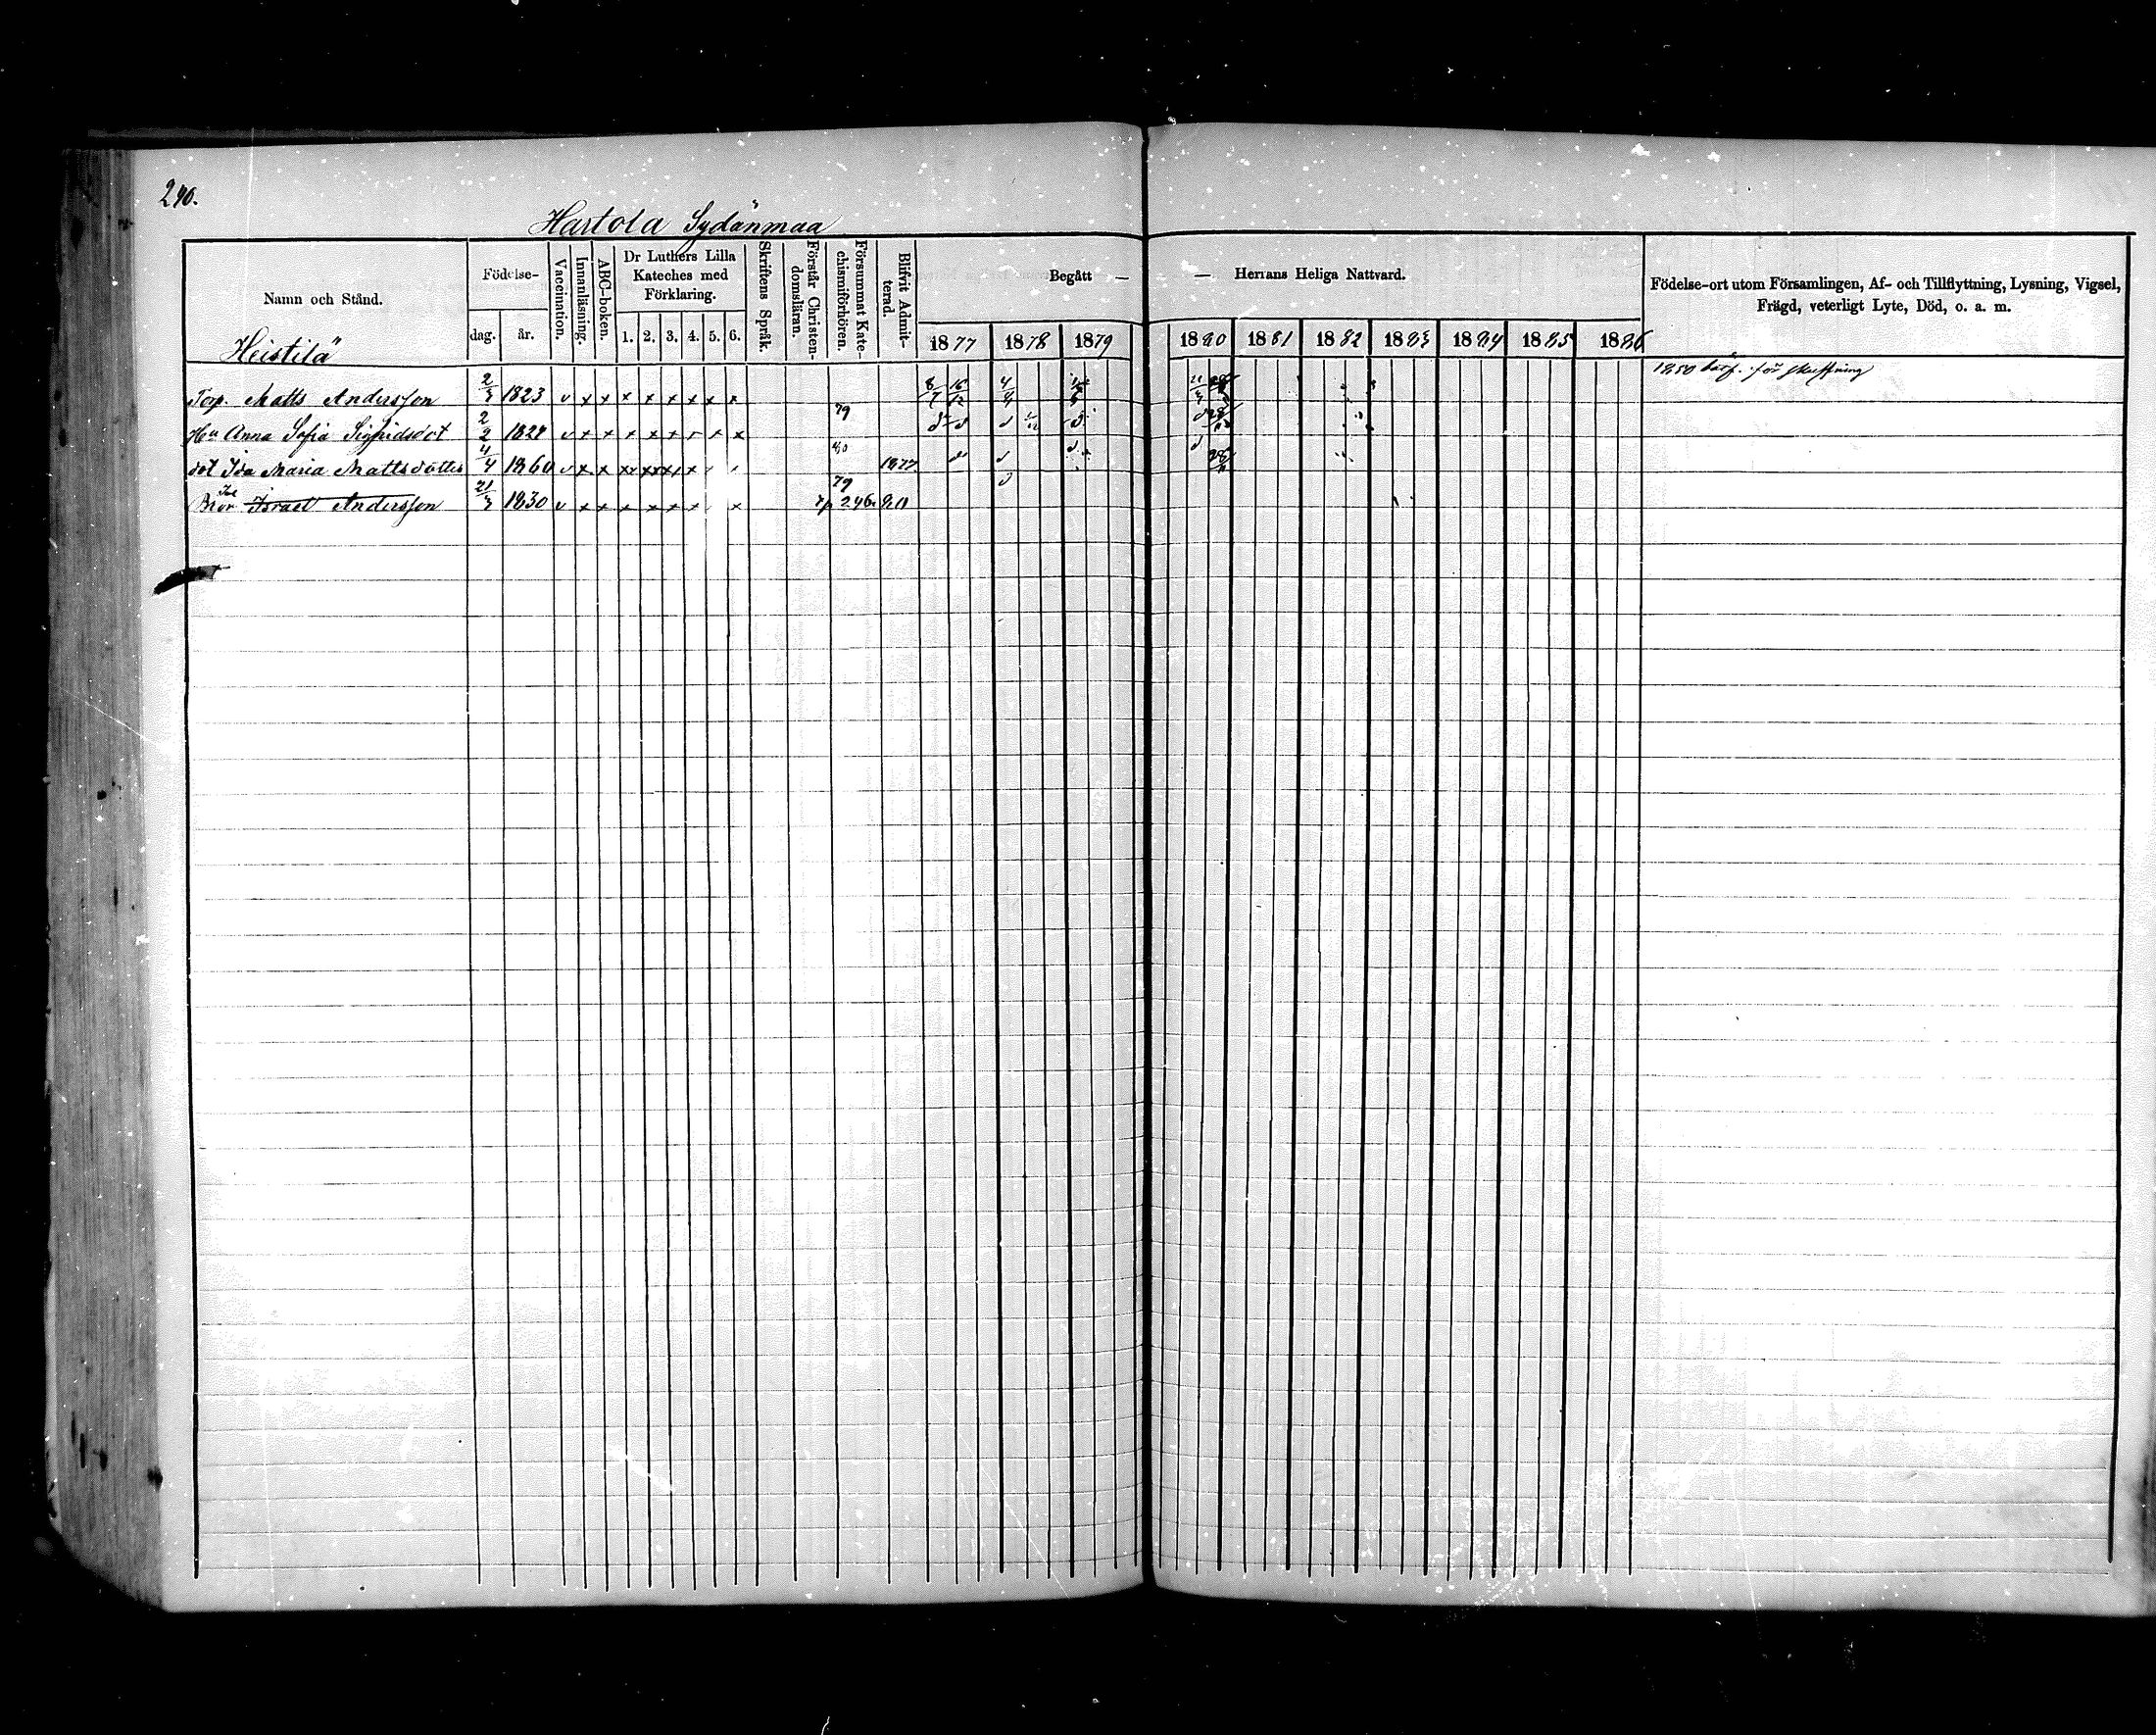 240.
Hartola Sydänmaa
Namn och Stånd.
Födelse-
dag.
år.
Vaccination.
Innanläsning.
ABC-boken.
Dr Luthers Lilla
Kateches med
Förklaring.
1. 2. 3. 4. 5. 6.
Skriftens Språk.
Förstår Christen-
domsläran.
Försummat Kate-
chismiförhören.
Blifvit Admit-
terad.
Begått —
— Herrans Heliga Nattvard.
1877 1878 1879 1880 1881 1882 1883 1884 1885 1886
Födelse-ort utom Församlingen, Af- och Tillflyttning, Lysning, Vigsel,
Frägd, veterligt Lyte, Död, o. a. m.
Heistilä
Torp. Matts Andersson 2/3 1823 v x x x x x x x x 8/7 16/12 4/8
1850
Hu Anna Sofia Sigfridsdot 2/2 1824 v x x x x x x x 79
dot Ida Maria Mattsdotter 4/4 1860 v x x 80 1877
Bror Israel Andersson 21/3 1830 v x x x x x x x 79 246